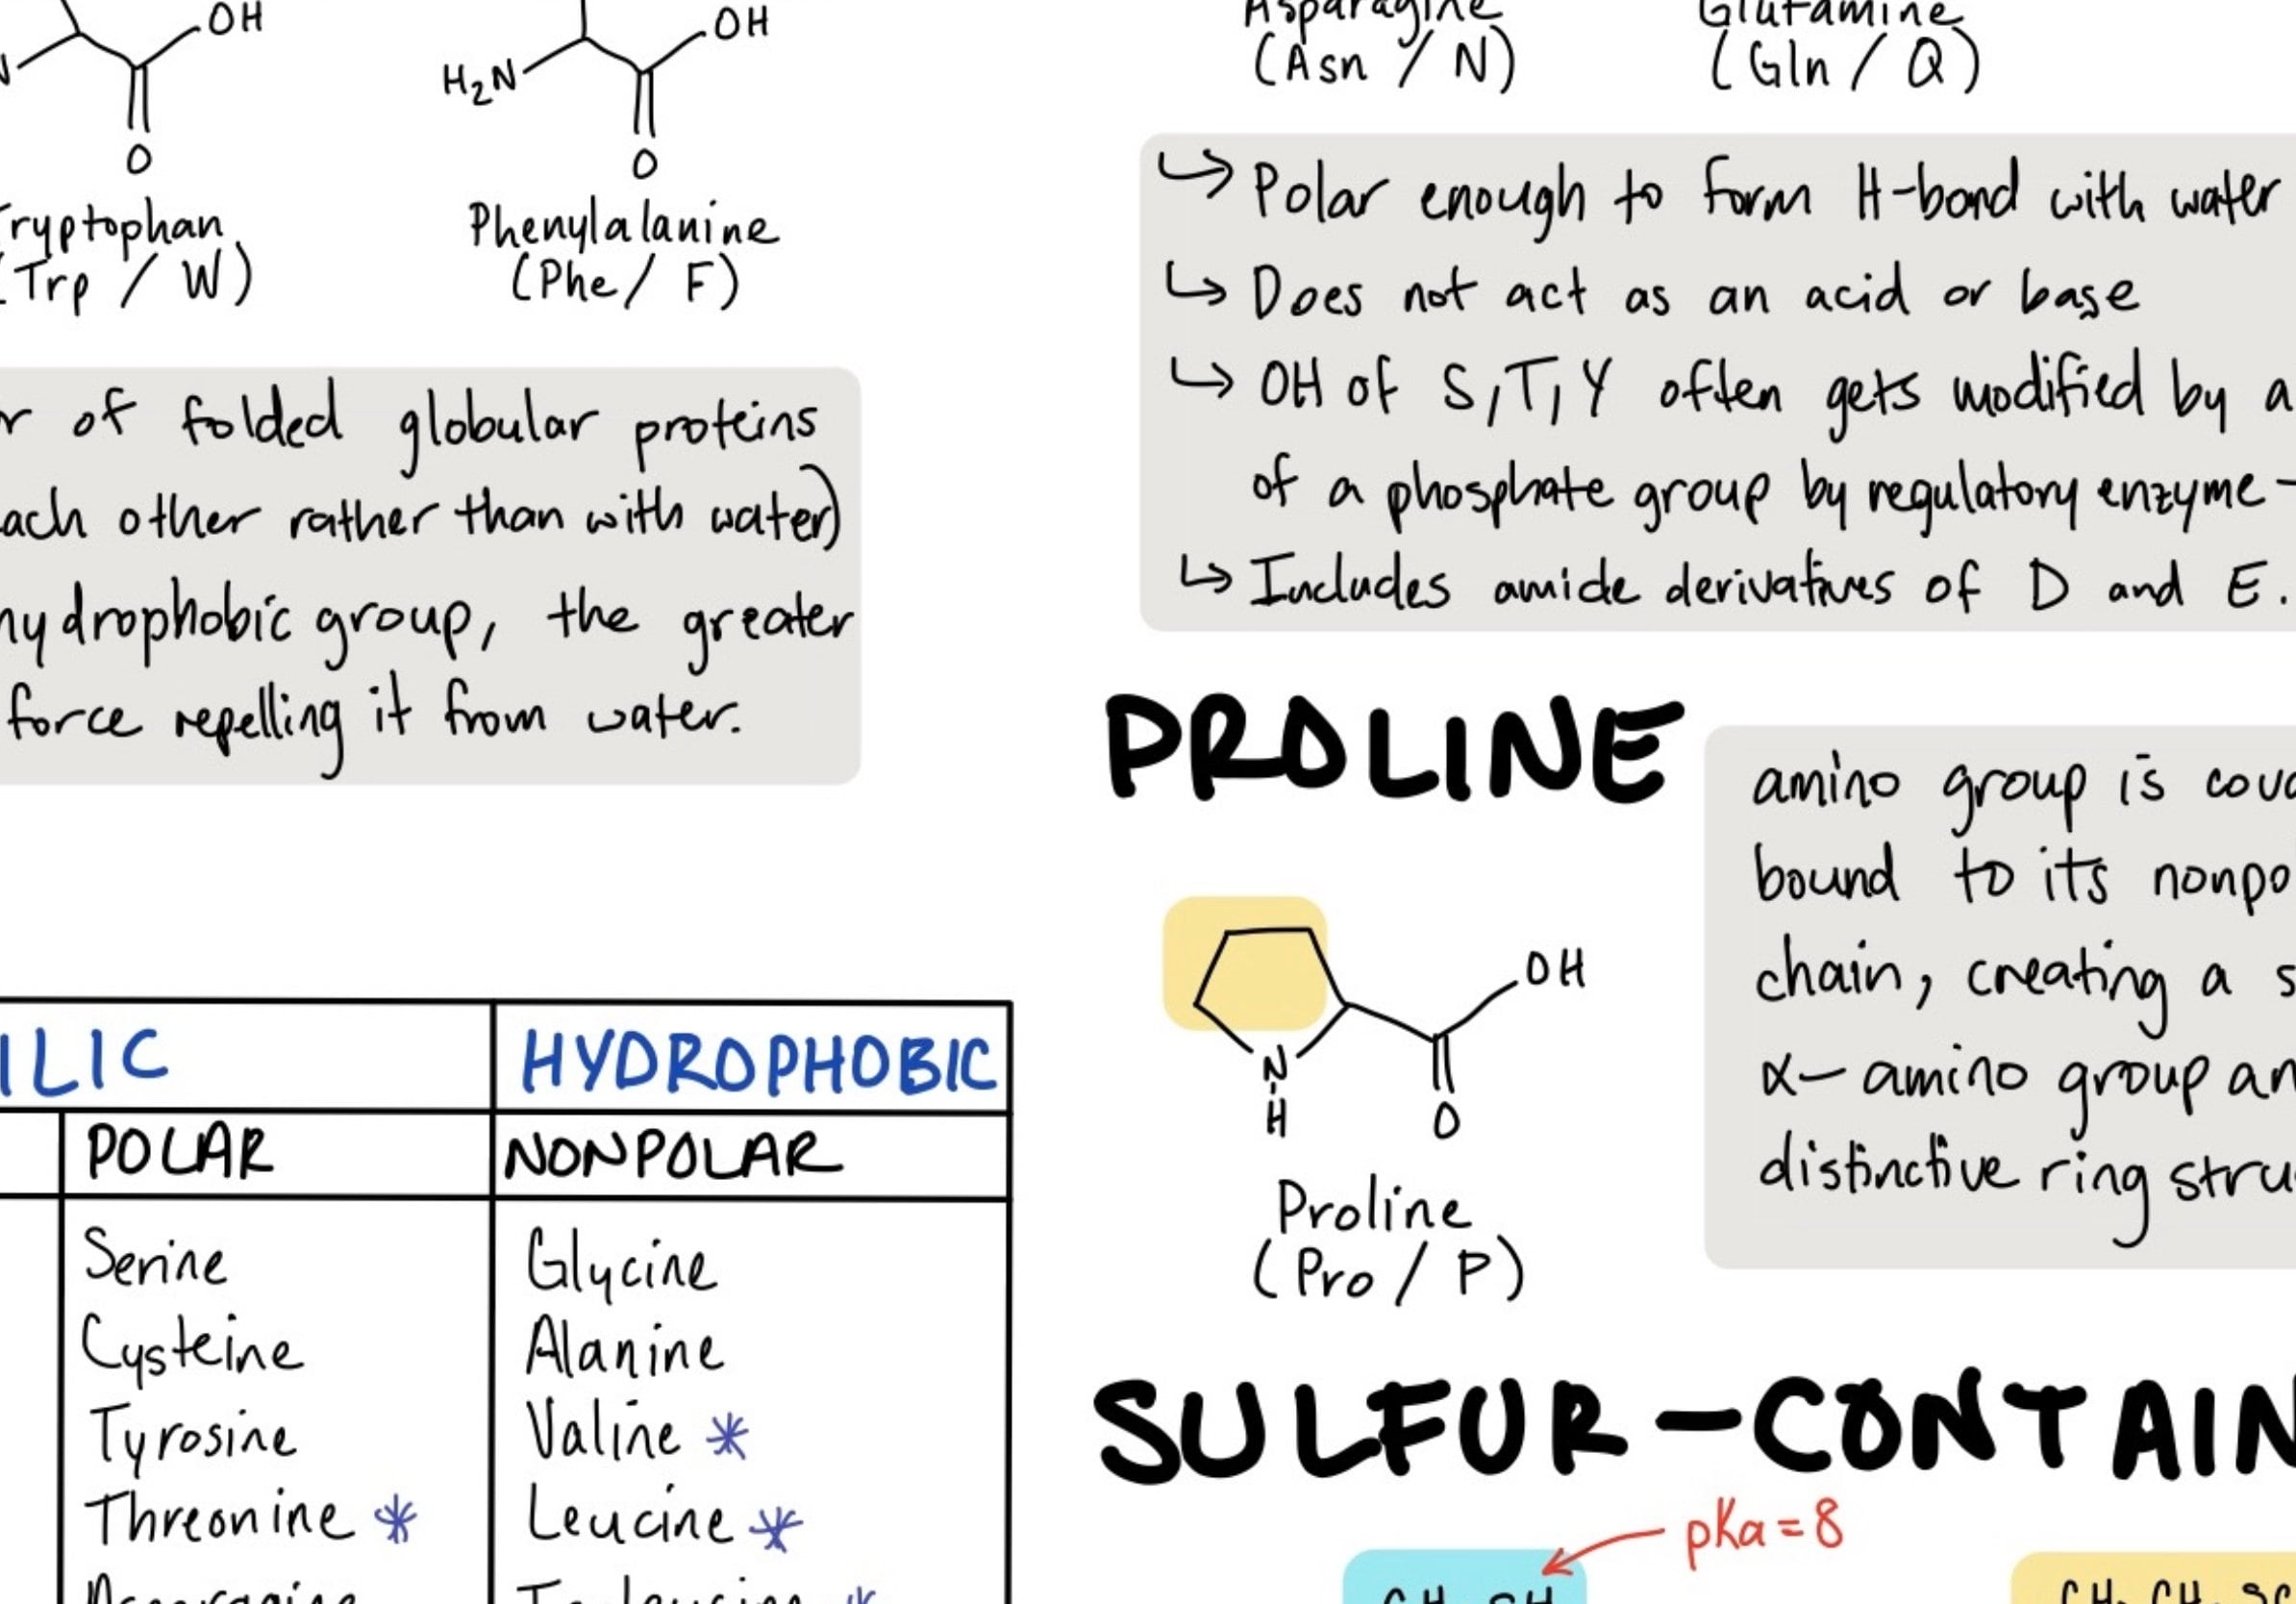 OH
OH
H₂N
O
O
Tryptophan
(Trp / W)
Phenylalanine
(Phe / F)
of folded globular proteins
each other rather than with water)
hydrophobic group, the greater
force repelling it from water.
Asparagine
(Asn / N)
Glutamine
(Gln / Q)
↳ Polar enough to form H-bond with water
↳ Does not act as an acid or base
↳ OH of S, T, Y often gets modified by a
of a phosphate group by regulatory enzyme -
↳ Includes amide derivatives of D and E.
PROLINE
amino group is
bound to its
chain, creating a
α-amino group
distinctive ring
OH
N
H
O
Proline
(Pro / P)
HYDROPHOBIC
POLAR
NONPOLAR
Serine
Glycine
Cysteine
Alanine
Tyrosine
Valine *
Threonine *
Leucine *
Asparagine
Isoleucine *
SULFUR-CONTAIN
pKa = 8